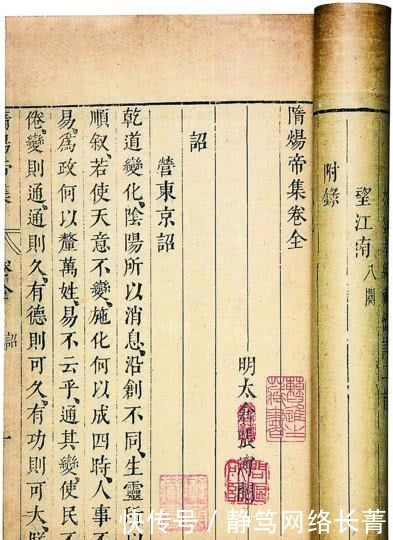 望江南 八闋
附錄
隋煬帝集卷全
明太倉張溥閱
詔
營東京詔
乾道變化、陰陽所以消息、沿創不同、生靈所以
順叙、若使天意不變、施化何以成四時、人事不
易、爲政何以釐萬姓、易不云乎、通其變、使民不
倦、變則通、通則久、有德則可久、有功則可大、
隋煬帝集 卷全 詔 一
快传号 / 静笃网络长菁